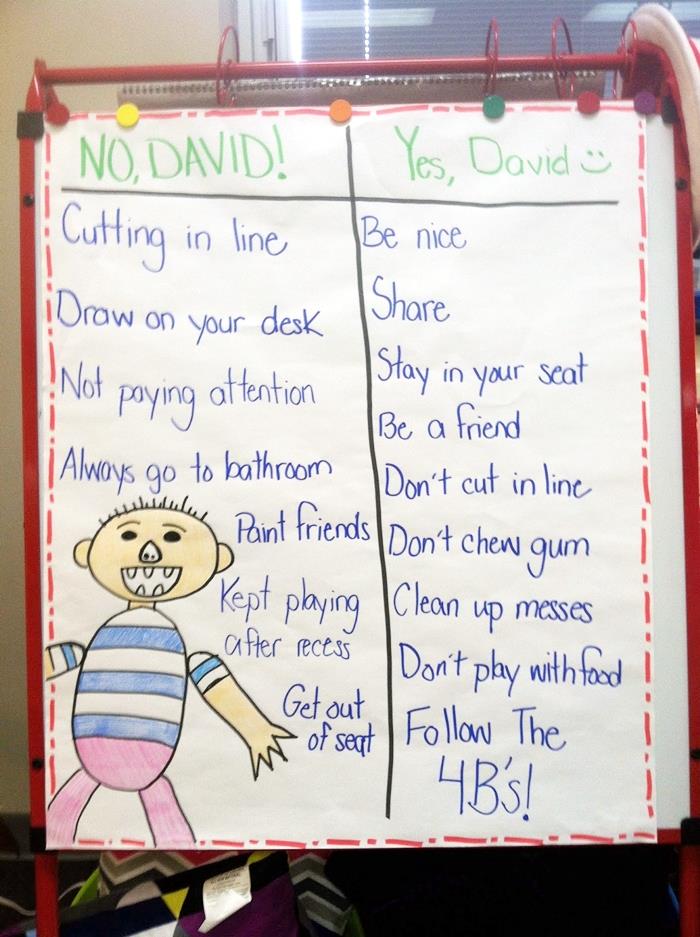 NO, DAVID!
Cutting in line
Draw on your desk
Not paying attention
Always go to bathroom
Paint friends
Kept playing
after recess
Get out
of seat
Yes, David
Be nice
Share
Stay in your seat
Be a friend
Don't cut in line
Don't chew gum
Clean up messes
Don't play with food
Follow The
4B's!